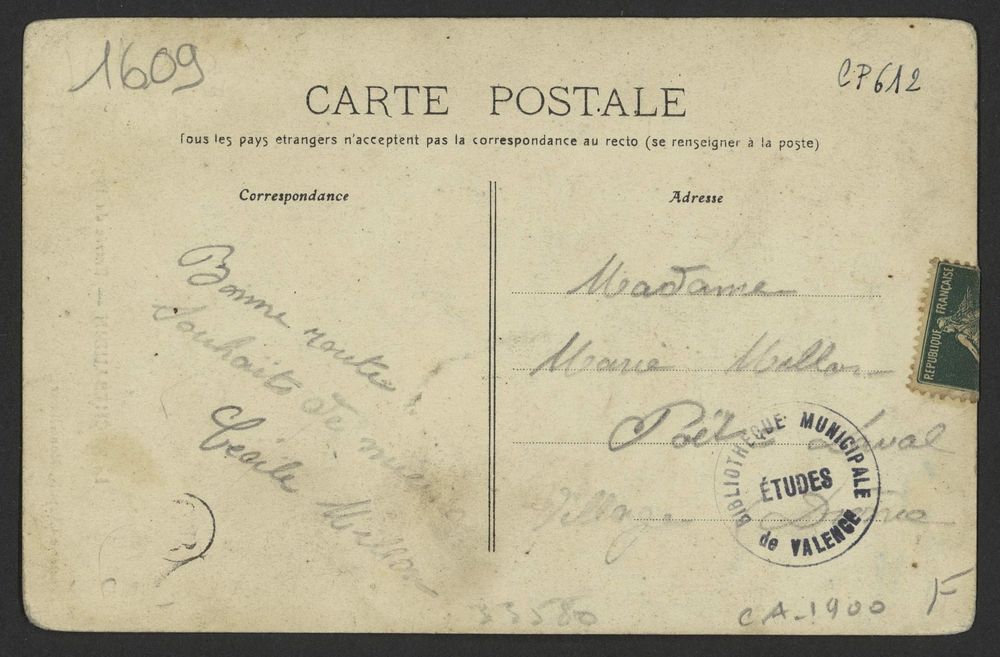 1609
CP612
CARTE POSTALE
Tous les pays etrangers n'acceptent pas la correspondance au recto (se renseigner à la poste)
Correspondance
Bonne route
Souhaits de
Cécile Millon
Adresse
Madame
Marie Millon
Poët Laval
Village Drôme
REPUBLIQUE FRANÇAISE
BIBLIOTHEQUE MUNICIPALE
ÉTUDES
de VALENCE
33580
CA-1900
F